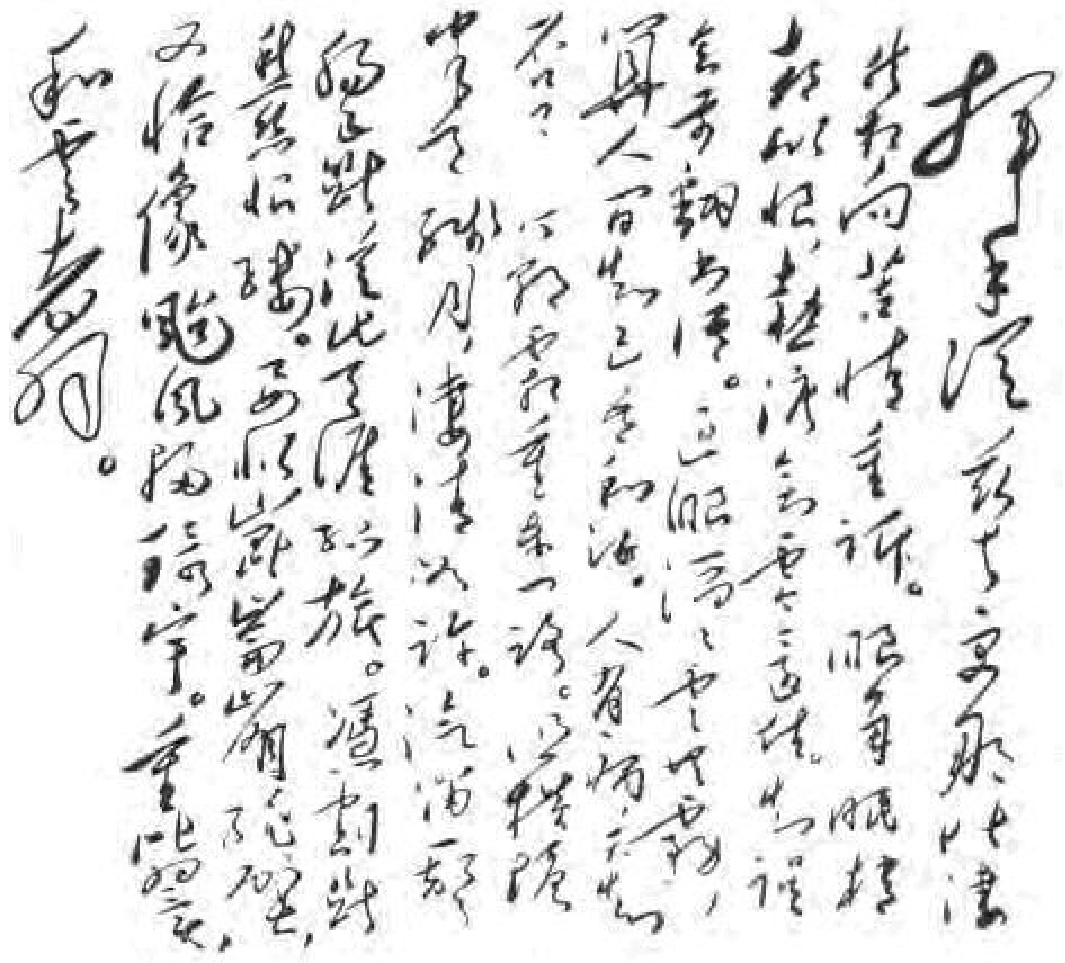 挥手从兹去更那堪凄
然相向苦情重诉。眼角眉梢
都似恨，热泪欲零还住。知误
会前翻书语。过眼滔滔云共雾，
算人间知己吾和汝。人有病天知
否？今朝霜重东门路。照横塘
半天残月，凄清如许。汽笛一声
肠已断从此天涯孤旅。凭割断
愁思恨缕。要似崑崙崩绝壁，
又恰像颱风扫寰宇。重比翼，
和云翥。